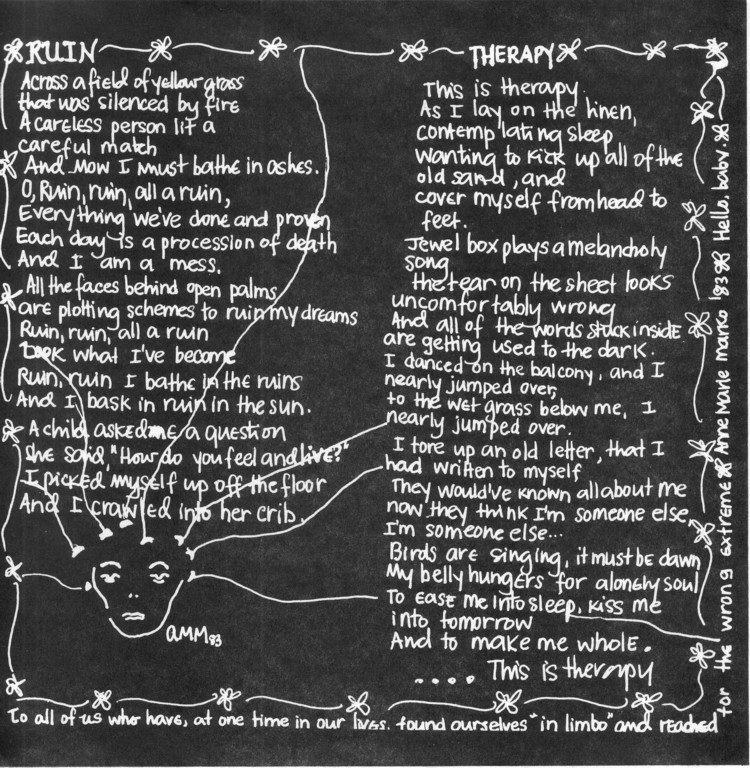 RUIN
Across a field of yellow grass
that was silenced by fire
A careless person lit a
careful match
And now I must bathe in ashes.
O, Ruin, ruin, all a ruin,
Everything we've done and proven
Each day is a procession of death
And I am a mess.
All the faces behind open palms
are plotting schemes to ruin my dreams
Ruin, ruin, all a ruin
Look what I've become
Ruin, ruin I bathe in the ruins
And I bask in ruin in the sun.
A child asked me a question
She said, "How do you feel and live?"
I picked myself up off the floor
And I crawled into her crib.
AMM 83
THERAPY
This is therapy.
As I lay on the linen,
contemplating sleep
wanting to kick up all of the
old sand, and
cover myself from head to
feet.
Jewel box plays a melancholy
song
the tear on the sheet looks
uncomfortably wrong
And all of the words stuck inside
are getting used to the dark.
I danced on the balcony, and I
nearly jumped over,
to the wet grass below me, I
nearly jumped over.
I tore up an old letter, that I
had written to myself
They would've known all about me
now they think I'm someone else,
I'm someone else...
Birds are singing, it must be dawn
My belly hungers for a lonely soul
To ease me into sleep, kiss me
into tomorrow
And to make me whole.
.... This is therapy
To all of us who have, at one time in our lives. found ourselves "in limbo" and reached
for the wrong extreme Anne Marie Manko '83 Hello, baby.